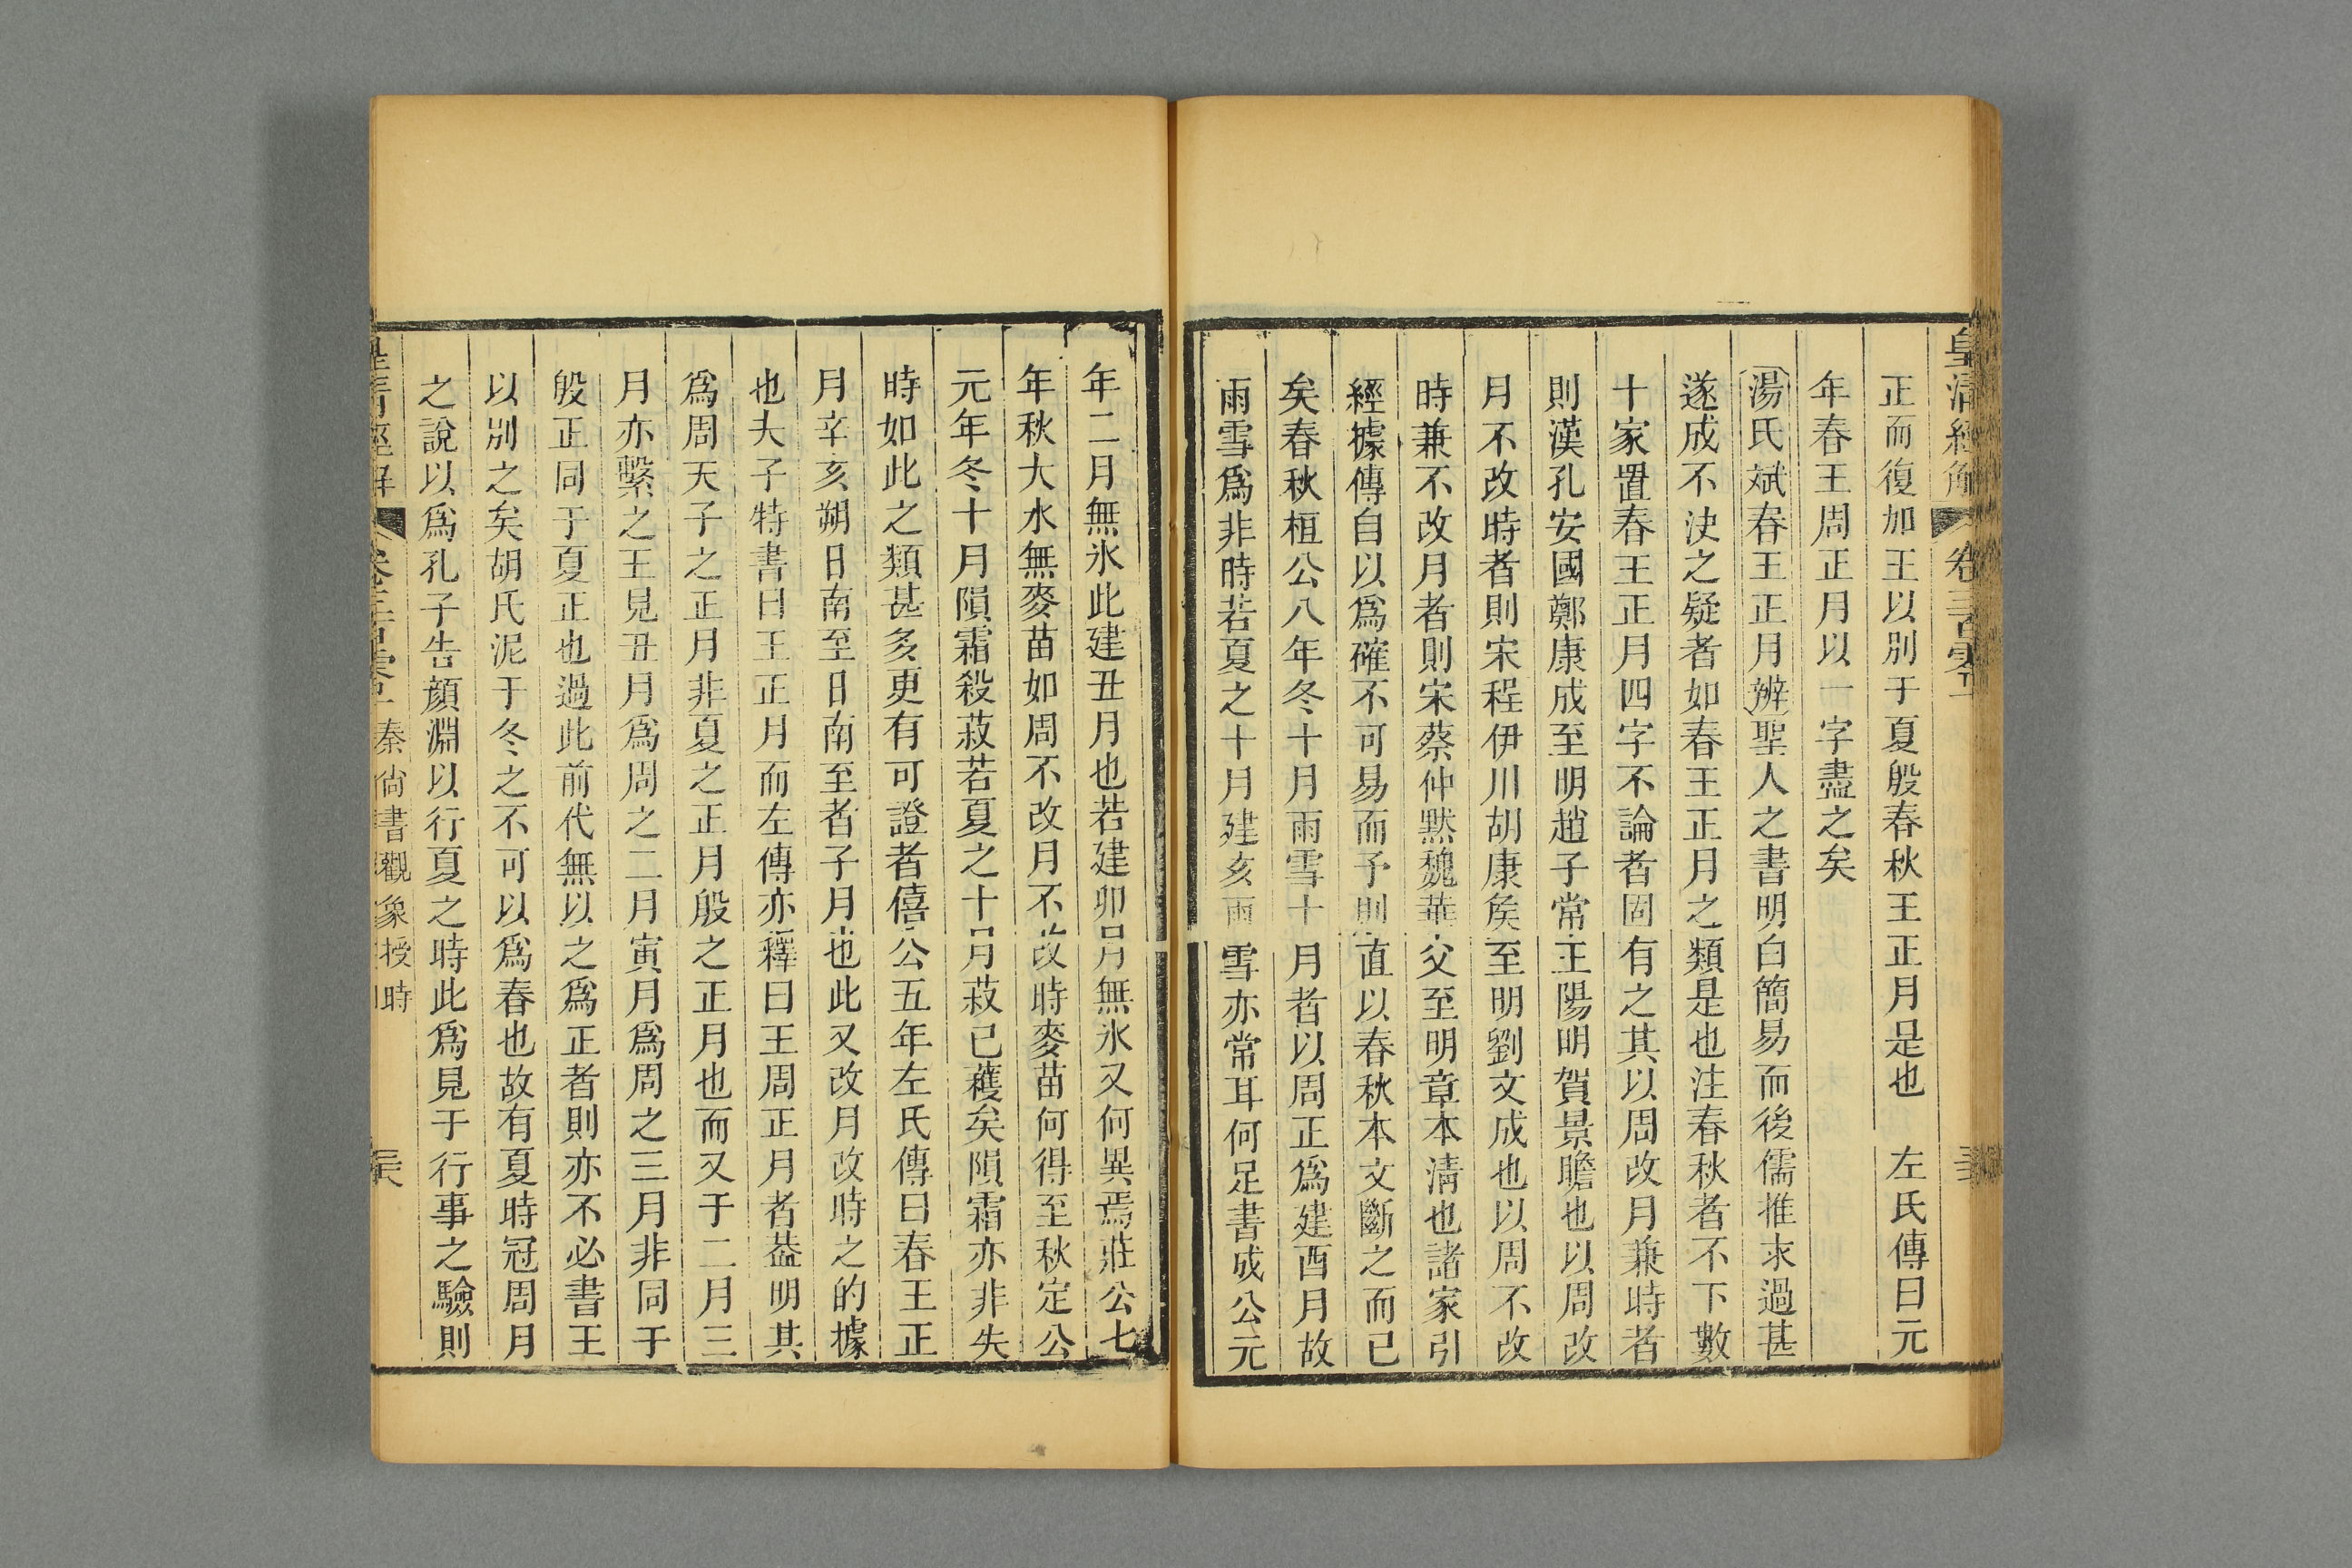 皇清經解 卷三百零
正而復加王以別于夏殷春秋王正月是也 左氏傳曰元
年春王周正月以一字盡之矣
湯氏斌春王正月辨聖人之書明白簡易而後儒推求過甚
遂成不決之疑者如春王正月之類是也注春秋者不下數
十家置春王正月四字不論者固有之其以周改月兼時者
則漢孔安國鄭康成至明趙子常王陽明賀景瞻也以周改
月不改時者則宋程伊川胡康矦至明劉文成也以周不改
時兼不改月者則宋蔡仲默魏華父至明章本清也諸家引
經據傳自以爲確不可易而予則直以春秋本文斷之而已
矣春秋桓公八年冬十月雨雪十月者以周正爲建酉月故
雨雪爲非時若夏之十月建亥雨雪亦常耳何足書成公元
年二月無氷此建丑月也若建卯月無氷又何異焉莊公七
年秋大水無麥苗如周不改月不改時麥苗何得至秋定公
元年冬十月隕霜殺菽若夏之十月菽已穫矣隕霜亦非失
時如此之類甚多更有可證者僖公五年左氏傳曰春王正
月辛亥朔日南至日南至者子月也此又改月改時之的據
也夫子特書曰王正月而左傳亦釋曰王周正月者葢明其
爲周天子之正月非夏之正月殷之正月也而又于二月三
月亦繫之王見丑月爲周之二月寅月爲周之三月非同于
殷正同于夏正也過此前代無以之爲正者則亦不必書王
以別之矣胡氏泥于冬之不可以爲春也故有夏時冠周月
之說以爲孔子告顏淵以行夏之時此爲見于行事之驗則
皇清經解 卷三百零 秦尙書觀象授時